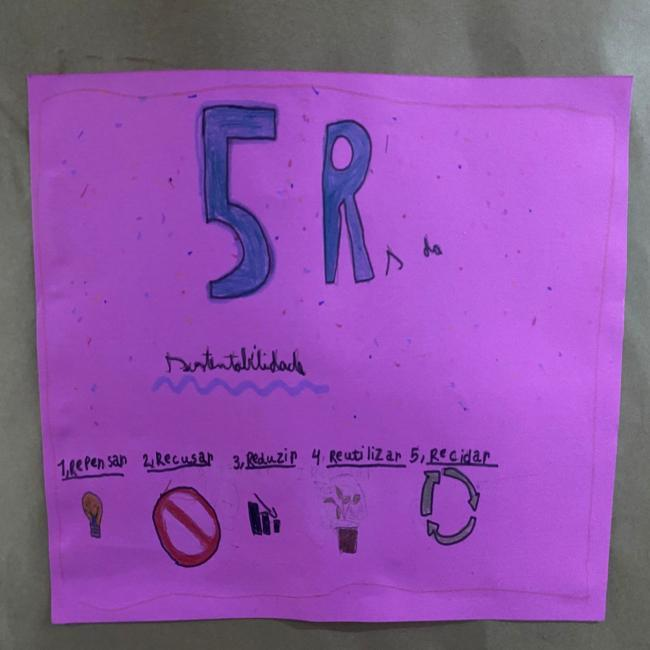 5 Rs da
sustentabilidade
1, Repensar 2, Recusar 3, Reduzir 4, Reutilizar 5, Reciclar